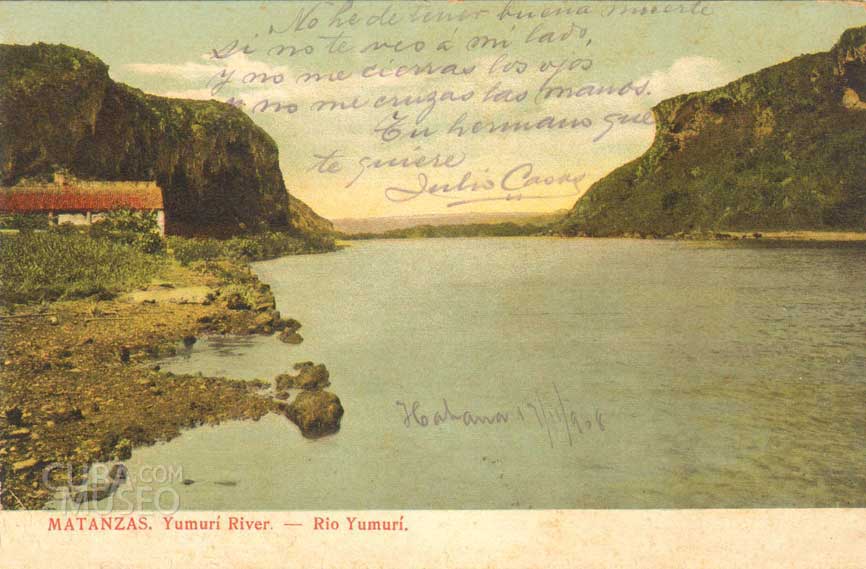 No he de tener buena muerte
si no te veo á mi lado,
y no me cierras los ojos
y no me cruzas las manos.
Tu hermano que
te quiere
Julio Casas
Habana 17/11/906
CUBA.COM
MUSEO
MATANZAS. Yumurí River. — Rio Yumurí.